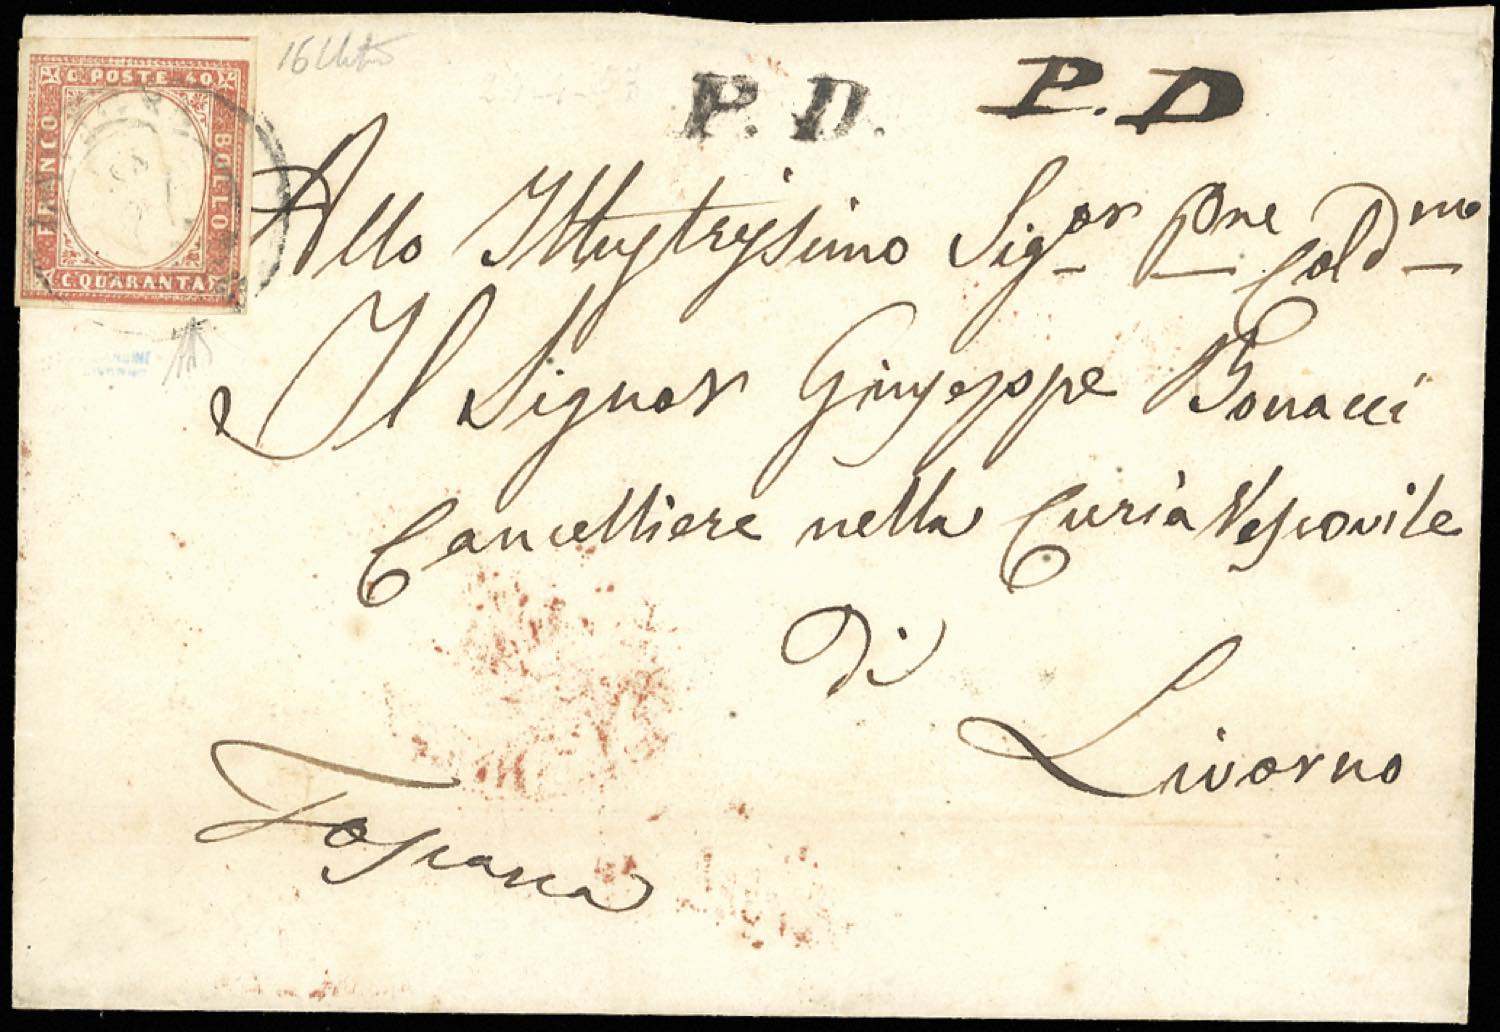 C. POSTE 40
FRANCO
BOLLO
C. QUARANTA
P. D.
P. D
Allo Illustrissimo Sig.or Pne Cold.mo
Il Signor Giuseppe Bonacci
Cancelliere nella Curia Vescovile
di
Livorno
Toscana